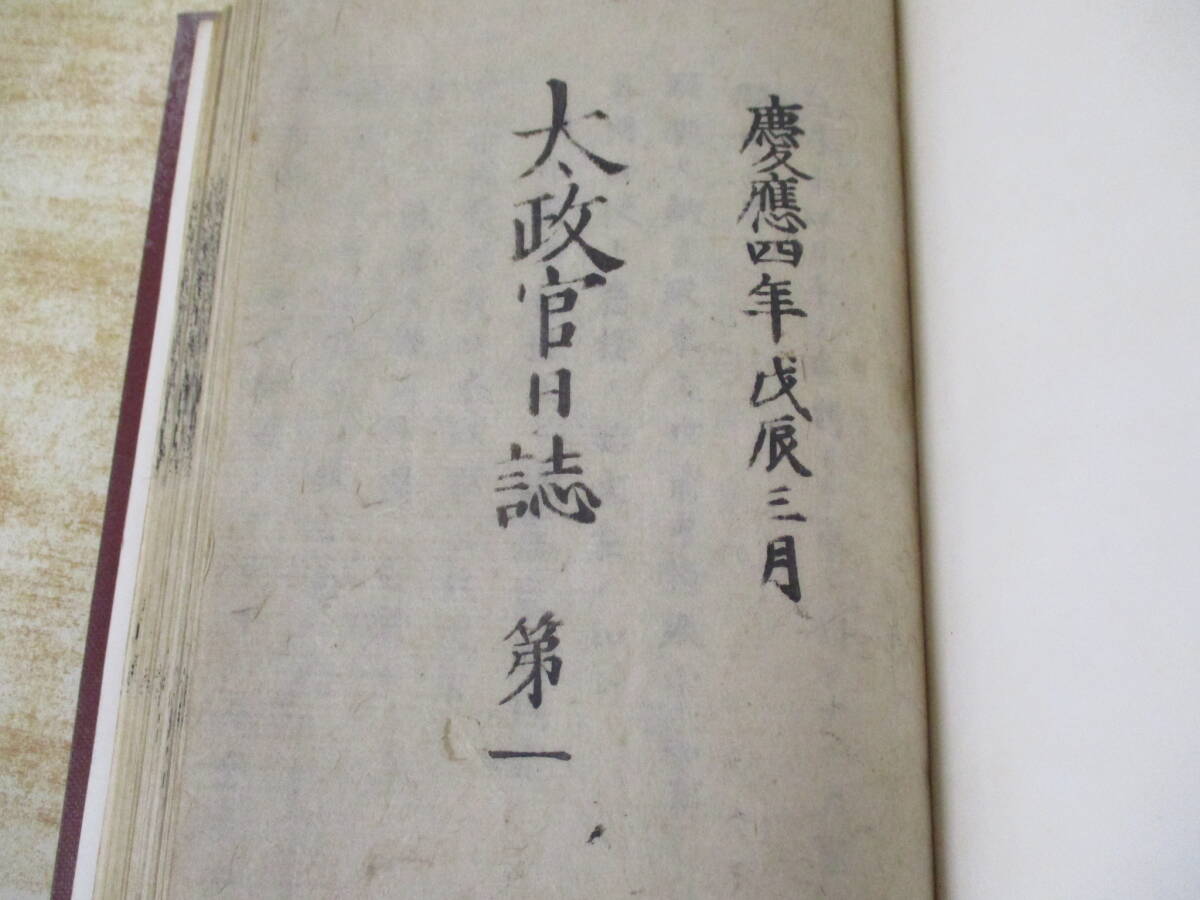 慶應四年戊辰三月
太政官日誌 第一